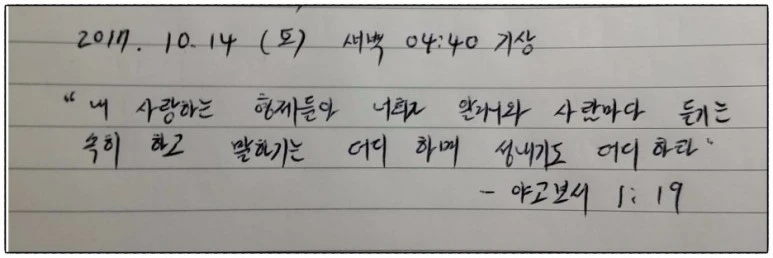 2017. 10. 14 (토) 새벽 04:40 기상
"내 사랑하는 형제들아 너희가 알거니와 사람마다 듣기는
속히 하고 말하기는 더디 하며 성내기도 더디 하라"
- 야고보서 1: 19